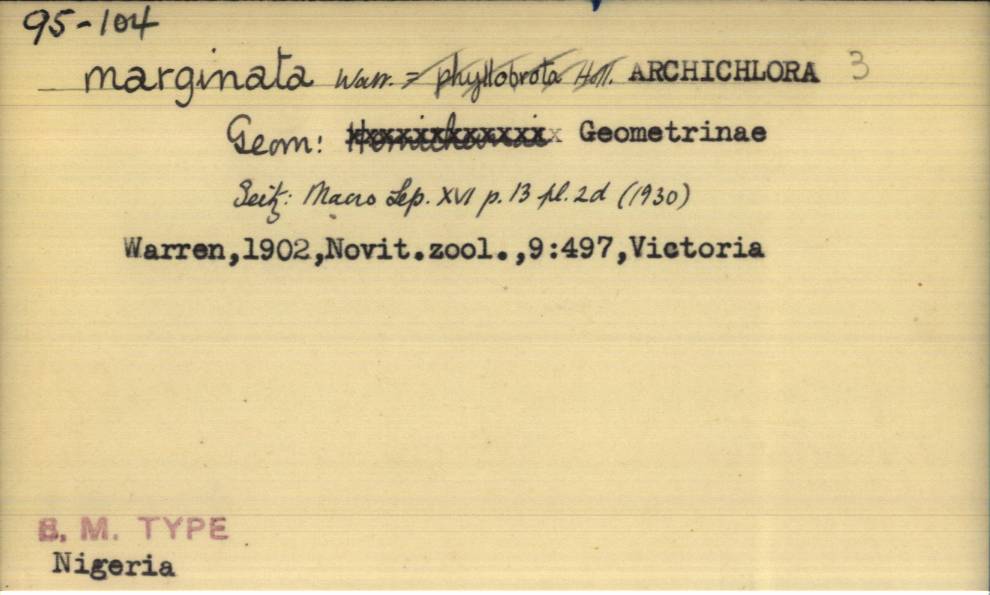 95-104
marginata Warr. = phyllobrota Holl. ARCHICHLORA 3
Geom: Geometrinae
Seitz: Macro Lep. XVI p. 13 pl. 2d (1930)
Warren,1902,Novit.zool.,9:497,Victoria
B. M. TYPE
Nigeria